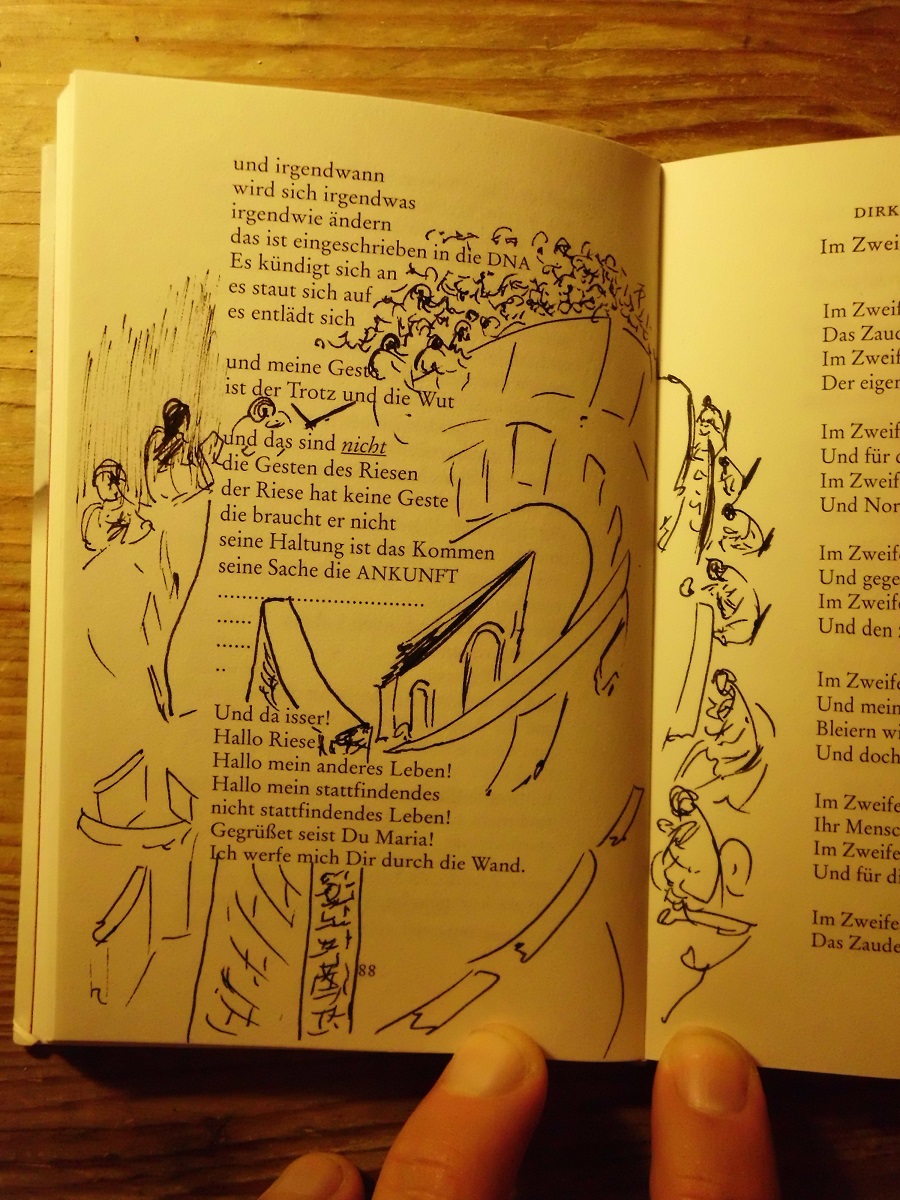 und irgendwann
wird sich irgendwas
irgendwie ändern
das ist eingeschrieben in die DNA
Es kündigt sich an
es staut sich auf
es entlädt sich
und meine Geste
ist der Trotz und die Wut
und das sind nicht
die Gesten des Riesen
der Riese hat keine Geste
die braucht er nicht
seine Haltung ist das Kommen
seine Sache die ANKUNFT
..........................................
......
......
..
Und da isser!
Hallo Riese
Hallo mein anderes Leben!
Hallo mein stattfindendes
nicht stattfindendes Leben!
Gegrüßet seist Du Maria!
Ich werfe mich Dir durch die Wand.
88
DIRK
Im
Im
Das
Im
Der
Im
Und für
Im
Und
Im
Und
Im
Und den
Im
Und
Bleiern
Und doch
Im
Ihr
Im
Und für
Im
Das